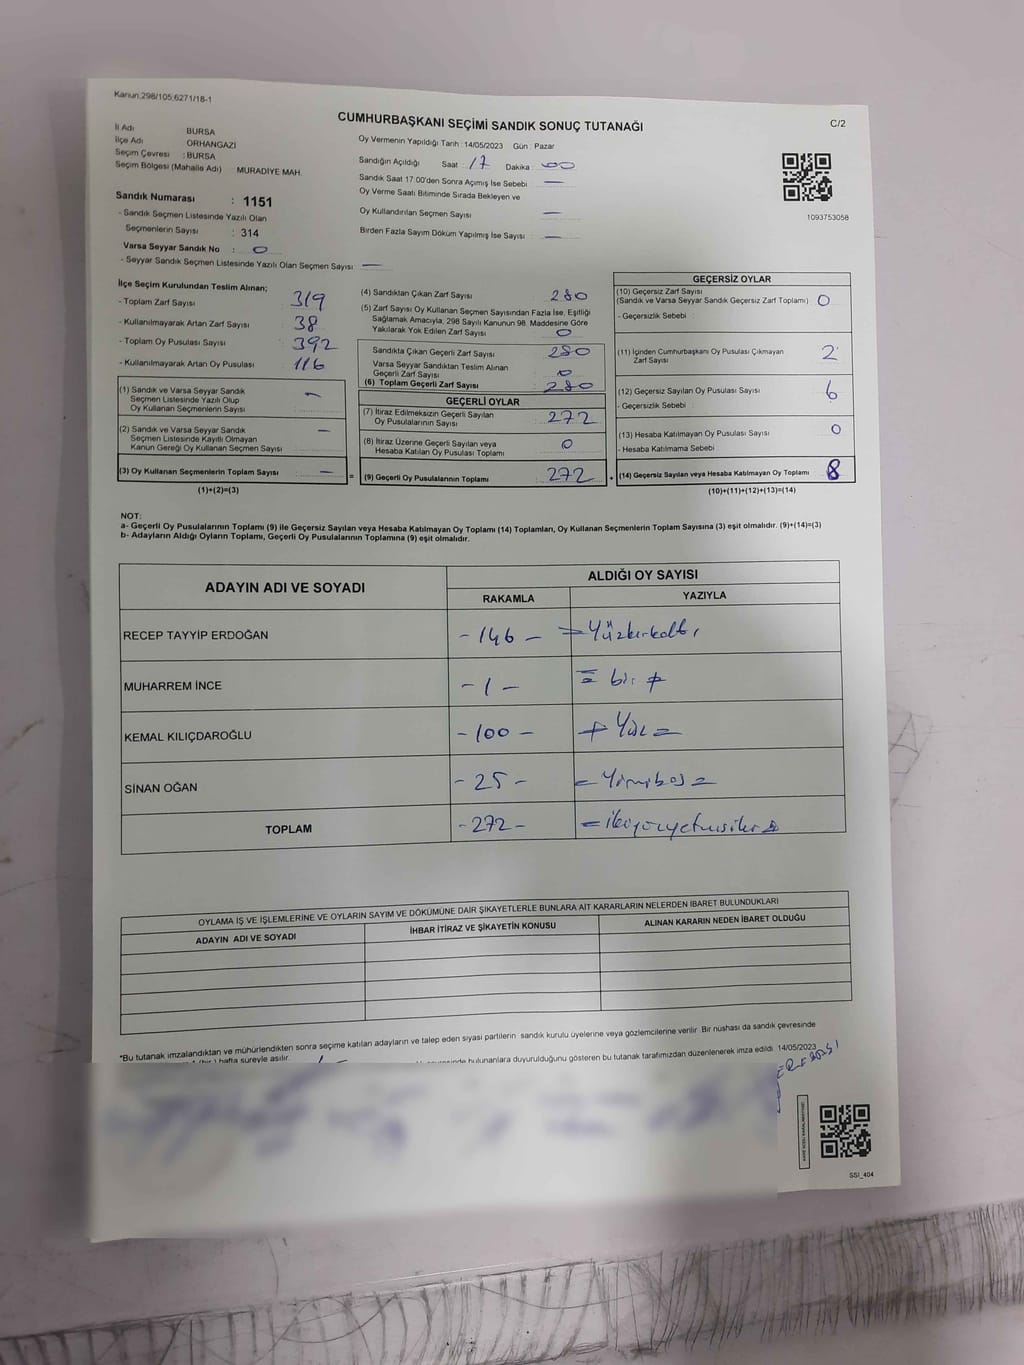 Kanun:298/105,6271/18-1
CUMHURBAŞKANI SEÇİMİ SANDIK SONUÇ TUTANAĞI
C/2
İl Adı BURSA
İlçe Adı ORHANGAZİ
Seçim Çevresi : BURSA
Seçim Bölgesi (Mahalle Adı) MURADİYE MAH.
Sandık Numarası : 1151
- Sandık Seçmen Listesinde Yazılı Olan
Seçmenlerin Sayısı : 314
Varsa Seyyar Sandık No : 0
- Seyyar Sandık Seçmen Listesinde Yazılı Olan Seçmen Sayısı —
Oy Vermenin Yapıldığı Tarih : 14/05/2023 Gün : Pazar
Sandığın Açıldığı Saat 17 Dakika 00
Sandık Saat 17:00'den Sonra Açımış İse Sebebi —
Oy Verme Saati Bitiminde Sırada Bekleyen ve
Oy Kullandırılan Seçmen Sayısı —
Birden Fazla Sayım Döküm Yapılmış İse Sayısı —
1093753058
İlçe Seçim Kurulundan Teslim Alınan;
- Toplam Zarf Sayısı 319
- Kullanılmayarak Artan Zarf Sayısı 38
- Toplam Oy Pusulası Sayısı 392
- Kullanılmayarak Artan Oy Pusulası 116
(1) Sandık ve Varsa Seyyar Sandık
Seçmen Listesinde Yazılı Olup
Oy Kullanan Seçmenlerin Sayısı —
(2) Sandık ve Varsa Seyyar Sandık
Seçmen Listesinde Kayıtlı Olmayan
Kanun Gereği Oy Kullanan Seçmen Sayısı —
(3) Oy Kullanan Seçmenlerin Toplam Sayısı —
(1)+(2)=(3)
=
(4) Sandıktan Çıkan Zarf Sayısı 280
(5) Zarf Sayısı Oy Kullanan Seçmen Sayısından Fazla İse, Eşitliği
Sağlamak Amacıyla, 298 Sayılı Kanunun 98. Maddesine Göre
Yakılarak Yok Edilen Zarf Sayısı 0
Sandıkta Çıkan Geçerli Zarf Sayısı 280
Varsa Seyyar Sandıktan Teslim Alınan
Geçerli Zarf Sayısı 0
(6) Toplam Geçerli Zarf Sayısı 280
GEÇERLİ OYLAR
(7) İtiraz Edilmeksizin Geçerli Sayılan
Oy Pusulalarının Sayısı 272
(8) İtiraz Üzerine Geçerli Sayılan veya
Hesaba Katılan Oy Pusulası Toplamı 0
(9) Geçerli Oy Pusulalarının Toplamı 272
+
GEÇERSİZ OYLAR
(10) Geçersiz Zarf Sayısı
(Sandık ve Varsa Seyyar Sandık Geçersiz Zarf Toplamı) 0
- Geçersizlik Sebebi :
(11) İçinden Cumhurbaşkanı Oy Pusulası Çıkmayan
Zarf Sayısı 2
(12) Geçersiz Sayılan Oy Pusulası Sayısı 6
- Geçersizlik Sebebi :
(13) Hesaba Katılmayan Oy Pusulası Sayısı 0
- Hesaba Katılmama Sebebi
(14) Geçersiz Sayılan veya Hesaba Katılmayan Oy Toplamı 8
(10)+(11)+(12)+(13)=(14)
NOT:
a- Geçerli Oy Pusulalarının Toplamı (9) ile Geçersiz Sayılan veya Hesaba Katılmayan Oy Toplamı (14) Toplamları, Oy Kullanan Seçmenlerin Toplam Sayısına (3) eşit olmalıdır. (9)+(14)=(3)
b- Adayların Aldığı Oyların Toplamı, Geçerli Oy Pusulalarının Toplamına (9) eşit olmalıdır.
ADAYIN ADI VE SOYADI
ALDIĞI OY SAYISI
RAKAMLA YAZIYLA
RECEP TAYYİP ERDOĞAN -146- Yüzkırkaltı
MUHARREM İNCE -1- bir
KEMAL KILIÇDAROĞLU -100- Yüz
SİNAN OĞAN -25- Yirmibeş
TOPLAM -272- ikiyüzyetmişiki
OYLAMA İŞ VE İŞLEMLERİNE VE OYLARIN SAYIM VE DÖKÜMÜNE DAİR ŞİKAYETLERLE BUNLARA AİT KARARLARIN NELERDEN İBARET BULUNDUKLARI
ADAYIN ADI VE SOYADI İHBAR İTİRAZ VE ŞİKAYETİN KONUSU ALINAN KARARIN NEDEN İBARET OLDUĞU
*Bu tutanak imzalandıktan ve mühürlendikten sonra seçime katılan adayların ve talep eden siyasi partilerin sandık kurulu üyelerine veya gözlemcilerine verilir. Bir nüshası da sandık çevresinde
(bir) hafta süreyle asılır.
bulunanlara duyurulduğunu gösteren bu tutanak tarafımızdan düzenlenerek imza edildi. 14/05/2023
SSI_404